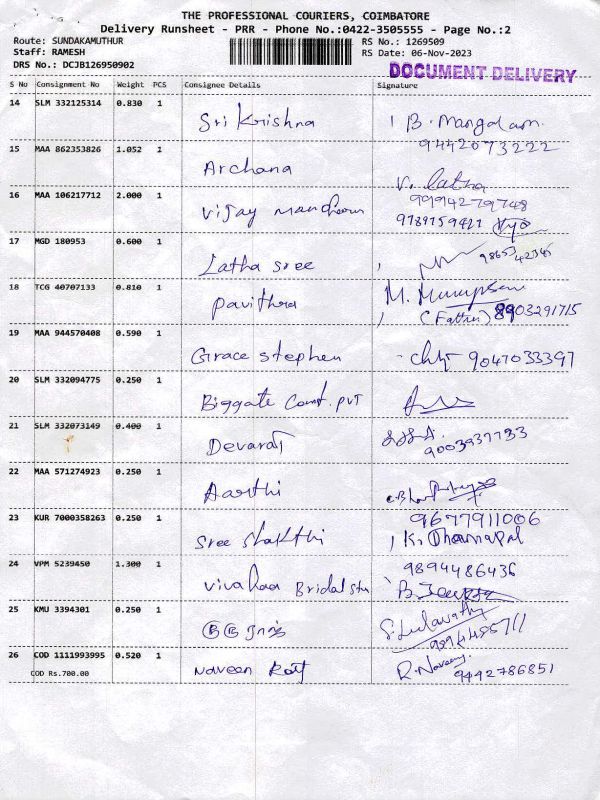 THE PROFESSIONAL COURIERS, COIMBATORE
Delivery Runsheet - PRR - Phone No.:0422-3505555 - Page No.:2
Route: SUNDAKAMUTHUR RS No.: 1269509
Staff: RAMESH RS Date: 06-Nov-2023
DRS No.: DCJB126950902 DOCUMENT DELIVERY
S No Consignment No Weight PCS Consignee Details Signature
14 SLM 332125314 0.830 1 Sri Krishna B. Mangalam.
9442073222
15 MAA 862353826 1.052 1 Archana V. Latha
9994279748
16 MAA 106217712 2.000 1 Vijay
9789159421
17 MGD 180953 0.600 1 Latha sree
18 TCG 40707133 0.810 1 Pavithra M.
(Father) 8903291715
19 MAA 944570408 0.590 1 Grace Stephen 9047033397
20 SLM 332094775 0.250 1 Biggate Pvt
21 SLM 332073149 0.400 1
9003937733
22 MAA 571274923 0.250 1 Aarthi
9677911006
23 KUR 7000358263 0.250 1 Sree Shakthi K. Dhanapal
24 VPM 5239450 1.300 1 Bridal 9894486436
25 KMU 3394301 0.250 1
26 COD 1111993995 0.520 1 Naveen R. Naveen
COD Rs.700.00 9442786851